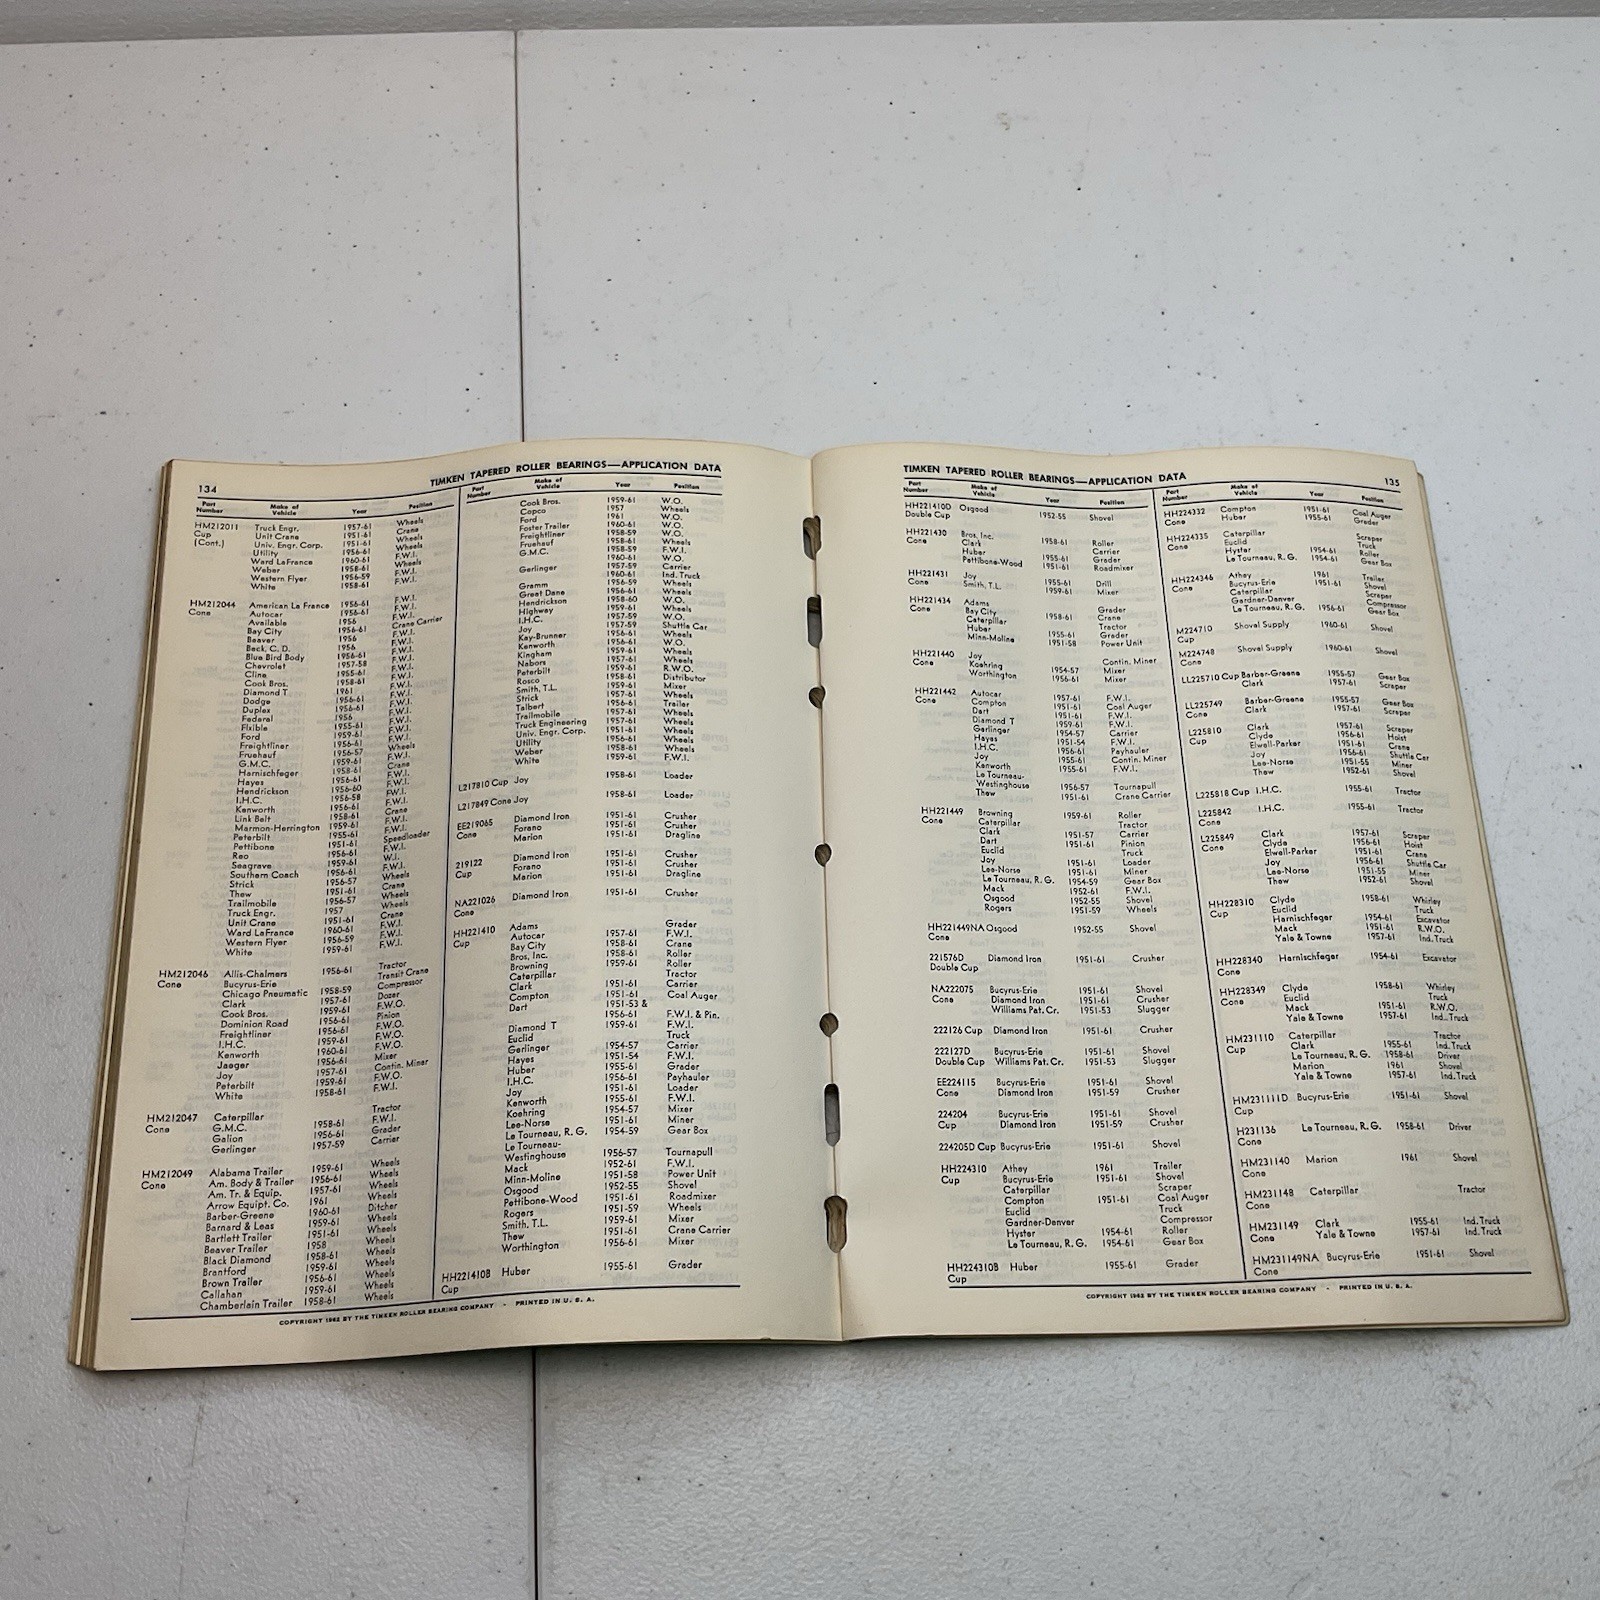 134
TIMKEN TAPERED ROLLER BEARINGS—APPLICATION DATA
Part Number Make of Vehicle Year Position
HM212011 Truck Engr. 1957-61 Wheels
Cup Unit Crane 1951-61 Crane
(Cont.) Univ. Engr. Corp. 1951-61 Wheels
Utility 1956-61 Wheels
Ward LaFrance 1960-61 F.W.I.
Weber 1958-61 Wheels
Western Flyer 1956-59 F.W.I.
White 1958-61 F.W.I.
HM212044 American La France 1956-61 F.W.I.
Cone Autocar 1956-61 F.W.I.
Available 1956 F.W.I.
Bay City 1956-61 Crane Carrier
Beaver 1956 F.W.I.
Beck, C. D. 1956 F.W.I.
Blue Bird Body 1956-61 F.W.I.
Chevrolet 1957-58 F.W.I.
Cline 1955-61 F.W.I.
Cook Bros. 1958-61 F.W.I.
Diamond T 1961 F.W.I.
Dodge 1956-61 F.W.I.
Duplex 1956-61 F.W.I.
Federal 1956 F.W.I.
Flxible 1955-61 F.W.I.
Ford 1959-61 F.W.I.
Freightliner 1956-61 F.W.I.
Fruehauf 1956-57 Wheels
G.M.C. 1959-61 F.W.I.
Harnischfeger 1958-61 Crane
Hayes 1956-61 F.W.I.
Hendrickson 1956-60 F.W.I.
I.H.C. 1956-58 F.W.I.
Kenworth 1956-61 F.W.I.
Link Belt 1958-61 Crane
Marmon-Herrington 1959-61 F.W.I.
Peterbilt 1955-61 F.W.I.
Pettibone 1951-61 Speedloader
Reo 1956-61 F.W.I.
Seagrave 1959-61 W.I.
Southern Coach 1956-61 F.W.I.
Strick 1956-57 Wheels
Thew 1951-61 Crane
Trailmobile 1956-57 Wheels
Truck Engr. 1957 Wheels
Unit Crane 1951-61 Crane
Ward LaFrance 1960-61 F.W.I.
Western Flyer 1956-59 F.W.I.
White 1959-61 F.W.I.
HM212046 Allis-Chalmers Tractor
Cone Bucyrus-Erie 1956-61 Transit Crane
Chicago Pneumatic Compressor
Clark 1958-59 Dozer
Cook Bros. 1957-61 F.W.O.
Dominion Road 1959-61 Pinion
Freightliner 1956-61 F.W.O.
I.H.C. 1956-61 F.W.O.
Kenworth 1959-61 F.W.O.
Jaeger 1960-61 Mixer
Joy 1956-61 Contin. Miner
Peterbilt 1957-61 F.W.O.
White 1959-61 F.W.I.
1958-61
HM212047 Caterpillar Tractor
Cone G.M.C. 1958-61 F.W.I.
Galion 1956-61 Grader
Gerlinger 1957-59 Carrier
HM212049 Alabama Trailer 1959-61 Wheels
Cone Am. Body & Trailer 1956-61 Wheels
Am. Tr. & Equip. 1957-61 Wheels
Arrow Equipt. Co. 1961 Wheels
Barber-Greene 1960-61 Ditcher
Barnard & Leas 1959-61 Wheels
Bartlett Trailer 1951-61 Wheels
Beaver Trailer 1958 Wheels
Black Diamond 1958-61 Wheels
Brantford 1959-61 Wheels
Brown Trailer 1956-61 Wheels
Callahan 1959-61 Wheels
Chamberlain Trailer 1958-61 Wheels
Part Number Make of Vehicle Year Position
Cook Bros. 1959-61 W.O.
Copco 1957 Wheels
Ford 1961 W.O.
Foster Trailer 1960-61 Wheels
Freightliner 1958-59 W.O.
Fruehauf 1956-61 Wheels
G.M.C. 1958-59 F.W.I.
1960-61 W.O.
Gerlinger 1957-59 Carrier
1960-61 Ind. Truck
Gramm 1956-59 Wheels
Great Dane 1956-61 Wheels
Hendrickson 1958-60 W.O.
Highway 1959-61 Wheels
I.H.C. 1957-59 W.O.
Joy 1957-59 Shuttle Car
Kay-Brunner 1956-61 Wheels
Kenworth 1956-61 W.O.
Kingham 1959-61 Wheels
Nabors 1957-61 Wheels
Peterbilt 1959-61 R.W.O.
Rosco 1958-61 Distributor
Smith, T.L. 1959-61 Mixer
Strick 1957-61 Wheels
Talbert 1956-61 Trailer
Trailmobile 1957-61 Wheels
Truck Engineering 1957-61 Wheels
Univ. Engr. Corp. 1951-61 Wheels
Utility 1956-61 Wheels
Weber 1958-61 Wheels
White 1959-61 F.W.I.
L217810 Cup Joy 1958-61 Loader
L217849 Cone Joy 1958-61 Loader
EE219065 Diamond Iron 1951-61 Crusher
Cone Forano 1951-61 Crusher
Marion 1951-61 Dragline
219122 Diamond Iron 1951-61 Crusher
Cup Forano 1951-61 Crusher
Marion 1951-61 Dragline
NA221026 Diamond Iron 1951-61 Crusher
Cone
HH221410 Adams Grader
Cup Autocar 1957-61 F.W.I.
Bay City 1958-61 Crane
Bros, Inc. 1958-61 Roller
Browning 1959-61 Roller
Caterpillar Tractor
Clark 1951-61 Carrier
Compton 1951-61 Coal Auger
Dart 1951-53 &
1956-61 F.W.I. & Pin.
Diamond T 1959-61 F.W.I.
Euclid Truck
Gerlinger 1954-57 Carrier
Hayes 1951-54 F.W.I.
Huber 1955-61 Grader
I.H.C. 1956-61 Payhauler
Joy 1951-61 Loader
Kenworth 1955-61 F.W.I.
Koehring 1954-57 Mixer
Lee-Norse 1951-61 Miner
Le Tourneau, R. G. 1954-59 Gear Box
Le Tourneau-
Westinghouse 1956-57 Tournapull
Mack 1952-61 F.W.I.
Minn-Moline 1951-58 Power Unit
Osgood 1952-55 Shovel
Pettibone-Wood 1951-61 Roadmixer
Rogers 1951-59 Wheels
Smith, T.L. 1959-61 Mixer
Thew 1951-61 Crane Carrier
Worthington 1956-61 Mixer
HH221410B Huber 1955-61 Grader
Cup
COPYRIGHT 1962 BY THE TIMKEN ROLLER BEARING COMPANY - PRINTED IN U. S. A.
TIMKEN TAPERED ROLLER BEARINGS—APPLICATION DATA
135
Part Number Make of Vehicle Year Position
HH221410D Osgood 1952-55 Shovel
Double Cup
HH221430 Bros, Inc. 1958-61 Roller
Cone Clark Carrier
Huber 1955-61 Grader
Pettibone-Wood 1951-61 Roadmixer
HH221431 Joy 1955-61 Drill
Cone Smith, T.L. 1959-61 Mixer
HH221434 Adams Grader
Cone Bay City 1958-61 Crane
Caterpillar Tractor
Huber 1955-61 Grader
Minn-Moline 1951-58 Power Unit
HH221440 Joy Contin. Miner
Cone Koehring 1954-57 Mixer
Worthington 1956-61 Mixer
HH221442 Autocar 1957-61 F.W.I.
Cone Compton 1951-61 Coal Auger
Dart 1951-61 F.W.I.
Diamond T 1959-61 F.W.I.
Gerlinger 1954-57 Carrier
Hayes 1951-54 F.W.I.
I.H.C. 1956-61 Payhauler
Joy 1955-61 Contin. Miner
Kenworth 1955-61 F.W.I.
Le Tourneau-
Westinghouse 1956-57 Tournapull
Thew 1951-61 Crane Carrier
HH221449 Browning 1959-61 Roller
Cone Caterpillar Tractor
Clark 1951-57 Carrier
Dart 1951-61 Pinion
Euclid Truck
Joy 1951-61 Loader
Lee-Norse 1951-61 Miner
Le Tourneau, R. G. 1954-59 Gear Box
Mack 1952-61 F.W.I.
Osgood 1952-55 Shovel
Rogers 1951-59 Wheels
HH221449NA Osgood 1952-55 Shovel
Cone
221576D Diamond Iron 1951-61 Crusher
Double Cup
NA222075 Bucyrus-Erie 1951-61 Shovel
Cone Diamond Iron 1951-61 Crusher
Williams Pat. Cr. 1951-53 Slugger
222126 Cup Diamond Iron 1951-61 Crusher
222127D Bucyrus-Erie 1951-61 Shovel
Double Cup Williams Pat. Cr. 1951-53 Slugger
EE224115 Bucyrus-Erie 1951-61 Shovel
Cone Diamond Iron 1951-59 Crusher
224204 Bucyrus-Erie 1951-61 Shovel
Cup Diamond Iron 1951-59 Crusher
224205D Cup Bucyrus-Erie 1951-61 Shovel
HH224310 Athey 1961 Trailer
Cup Bucyrus-Erie 1951-61 Shovel
Caterpillar Scraper
Compton 1951-61 Coal Auger
Euclid Truck
Gardner-Denver Compressor
Hyster 1954-61 Roller
Le Tourneau, R. G. 1954-61 Gear Box
HH224310B Huber 1955-61 Grader
Cup
Part Number Make of Vehicle Year Position
HH224332 Compton 1951-61 Coal Auger
Cone Huber 1955-61 Grader
HH224335 Caterpillar Scraper
Cone Euclid Truck
Hyster 1954-61 Roller
Le Tourneau, R. G. 1954-61 Gear Box
HH224346 Athey 1961 Trailer
Cone Bucyrus-Erie 1951-61 Shovel
Caterpillar Scraper
Gardner-Denver Compressor
Le Tourneau, R. G. 1956-61 Gear Box
M224710 Shovel Supply 1960-61 Shovel
Cup
M224748 Shovel Supply 1960-61 Shovel
Cone
LL225710 Cup Barber-Greene 1955-57 Gear Box
Clark 1957-61 Scraper
LL225749 Barber-Greene 1955-57 Gear Box
Cone Clark 1957-61 Scraper
L225810 Clark 1957-61 Scraper
Cup Clyde 1956-61 Hoist
Elwell-Parker 1951-61 Crane
Joy 1956-61 Shuttle Car
Lee-Norse 1951-55 Miner
Thew 1952-61 Shovel
L225818 Cup I.H.C. 1955-61 Tractor
L225842 I.H.C. 1955-61 Tractor
Cone
L225849 Clark 1957-61 Scraper
Cone Clyde 1956-61 Hoist
Elwell-Parker 1951-61 Crane
Joy 1956-61 Shuttle Car
Lee-Norse 1951-55 Miner
Thew 1952-61 Shovel
HH228310 Clyde 1958-61 Whirley
Cup Euclid Truck
Harnischfeger 1954-61 Excavator
Mack 1951-61 R.W.O.
Yale & Towne 1957-61 Ind. Truck
HH228340 Harnischfeger 1954-61 Excavator
Cone
HH228349 Clyde 1958-61 Whirley
Cone Euclid Truck
Mack 1951-61 R.W.O.
Yale & Towne 1957-61 Ind. Truck
HM231110 Caterpillar Tractor
Cup Clark 1955-61 Ind. Truck
Le Tourneau, R. G. 1958-61 Driver
Marion 1961 Shovel
Yale & Towne 1957-61 Ind. Truck
HM231111D Bucyrus-Erie 1951-61 Shovel
Cup
H231136 Le Tourneau, R. G. 1958-61 Driver
Cone
HM231140 Marion 1961 Shovel
Cone
HM231148 Caterpillar Tractor
Cone
HM231149 Clark 1955-61 Ind. Truck
Cone Yale & Towne 1957-61 Ind. Truck
HM231149NA Bucyrus-Erie 1951-61 Shovel
Cone
COPYRIGHT 1962 BY THE TIMKEN ROLLER BEARING COMPANY - PRINTED IN U. S. A.